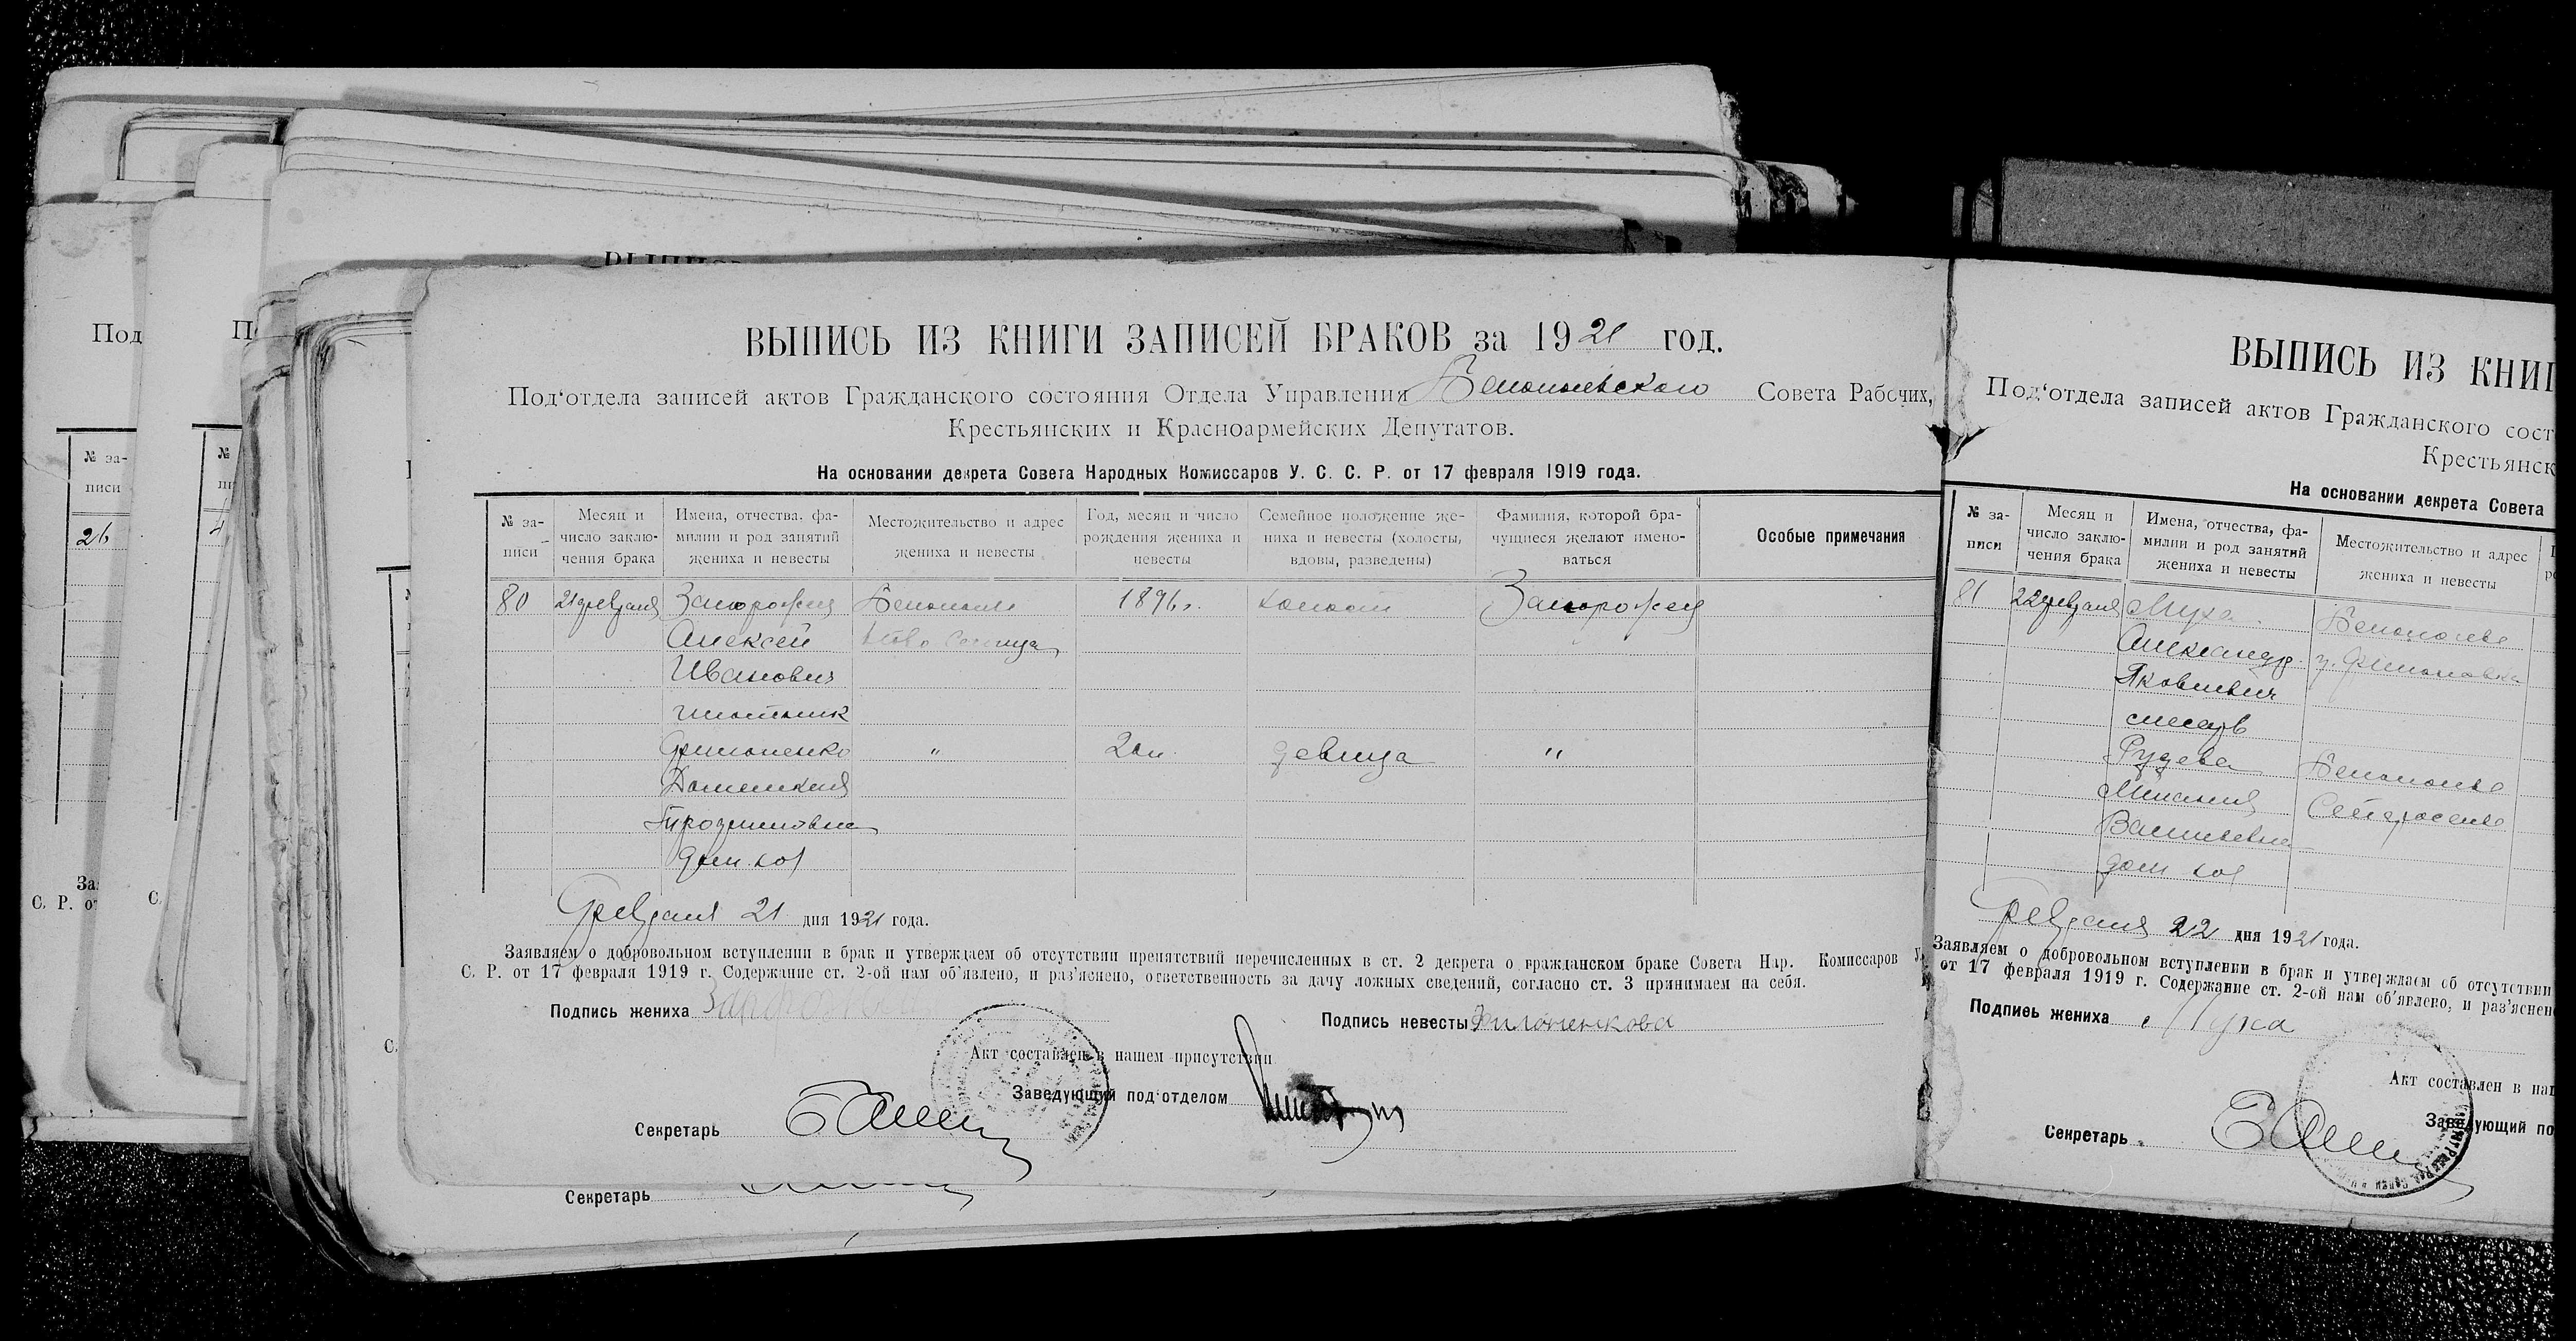 ВЫПИСЬ ИЗ КНИГИ ЗАПИСЕЙ БРАКОВ за 1921 год.
Под'отдела записей актов Гражданского состояния Отдела Управления Беловольского Совета Рабочих,
Крестьянских и Красноармейских Депутатов.
На основании декрета Совета Народных Комиссаров У. С. С. Р. от 17 февраля 1919 года.
№ за-
писи
Месяц и
число заклю-
чения брака
Имена, отчества, фа-
милии и род занятий
жениха и невесты
Местожительство и адрес
жениха и невесты
Год, месяц и число
рождения жениха и
невесты
Семейное положение же-
ниха и невесты (холосты,
вдовы, разведены)
Фамилия, которой бра-
чущиеся желают имено-
ваться
Особые примечания
80 21 февраля Запорожец 1896 г. холост Запорожец
Алексей
Иванович
плотник
Филоненко " 20 л. девица "
дом. хоз
Февраля 21 дня 1921 года.
Заявляем о добровольном вступлении в брак и утверждаем об отсутствии препятствий перечисленных в ст. 2 декрета о гражданском браке Совета Нар. Комиссаров У.
С. Р. от 17 февраля 1919 г. Содержание ст. 2-ой нам об'явлено, и раз'яснено, ответственность за дачу ложных сведений, согласно ст. 3 принимаем на себя.
Подпись жениха
Подпись невесты Филоненкова
Акт составлен в нашем присутствии
Заведующий под'отделом
Секретарь
Секретарь
ВЫПИСЬ ИЗ КНИГ
Под'отдела записей актов Гражданского сост
Крестьянск
На основании декрета Совета
№ за-
писи
Месяц и
число заклю-
чения брака
Имена, отчества, фа-
милии и род занятий
жениха и невесты
Местожительство и адрес
жениха и невесты
81 22 февраля Муха
Александр
Яковлевич
слесарь
Васильевна
дом хоз
Февраля 22 дня 1921 года.
Заявляем о добровольном вступлении в брак и утверждаем об отсутствии
от 17 февраля 1919 г. Содержание ст. 2-ой нам об'явлено, и раз'яснен
Подпись жениха Муха
Акт составлен в на
Заведующий по
Секретарь
Под
№ за-
писи
26
С. Р. от